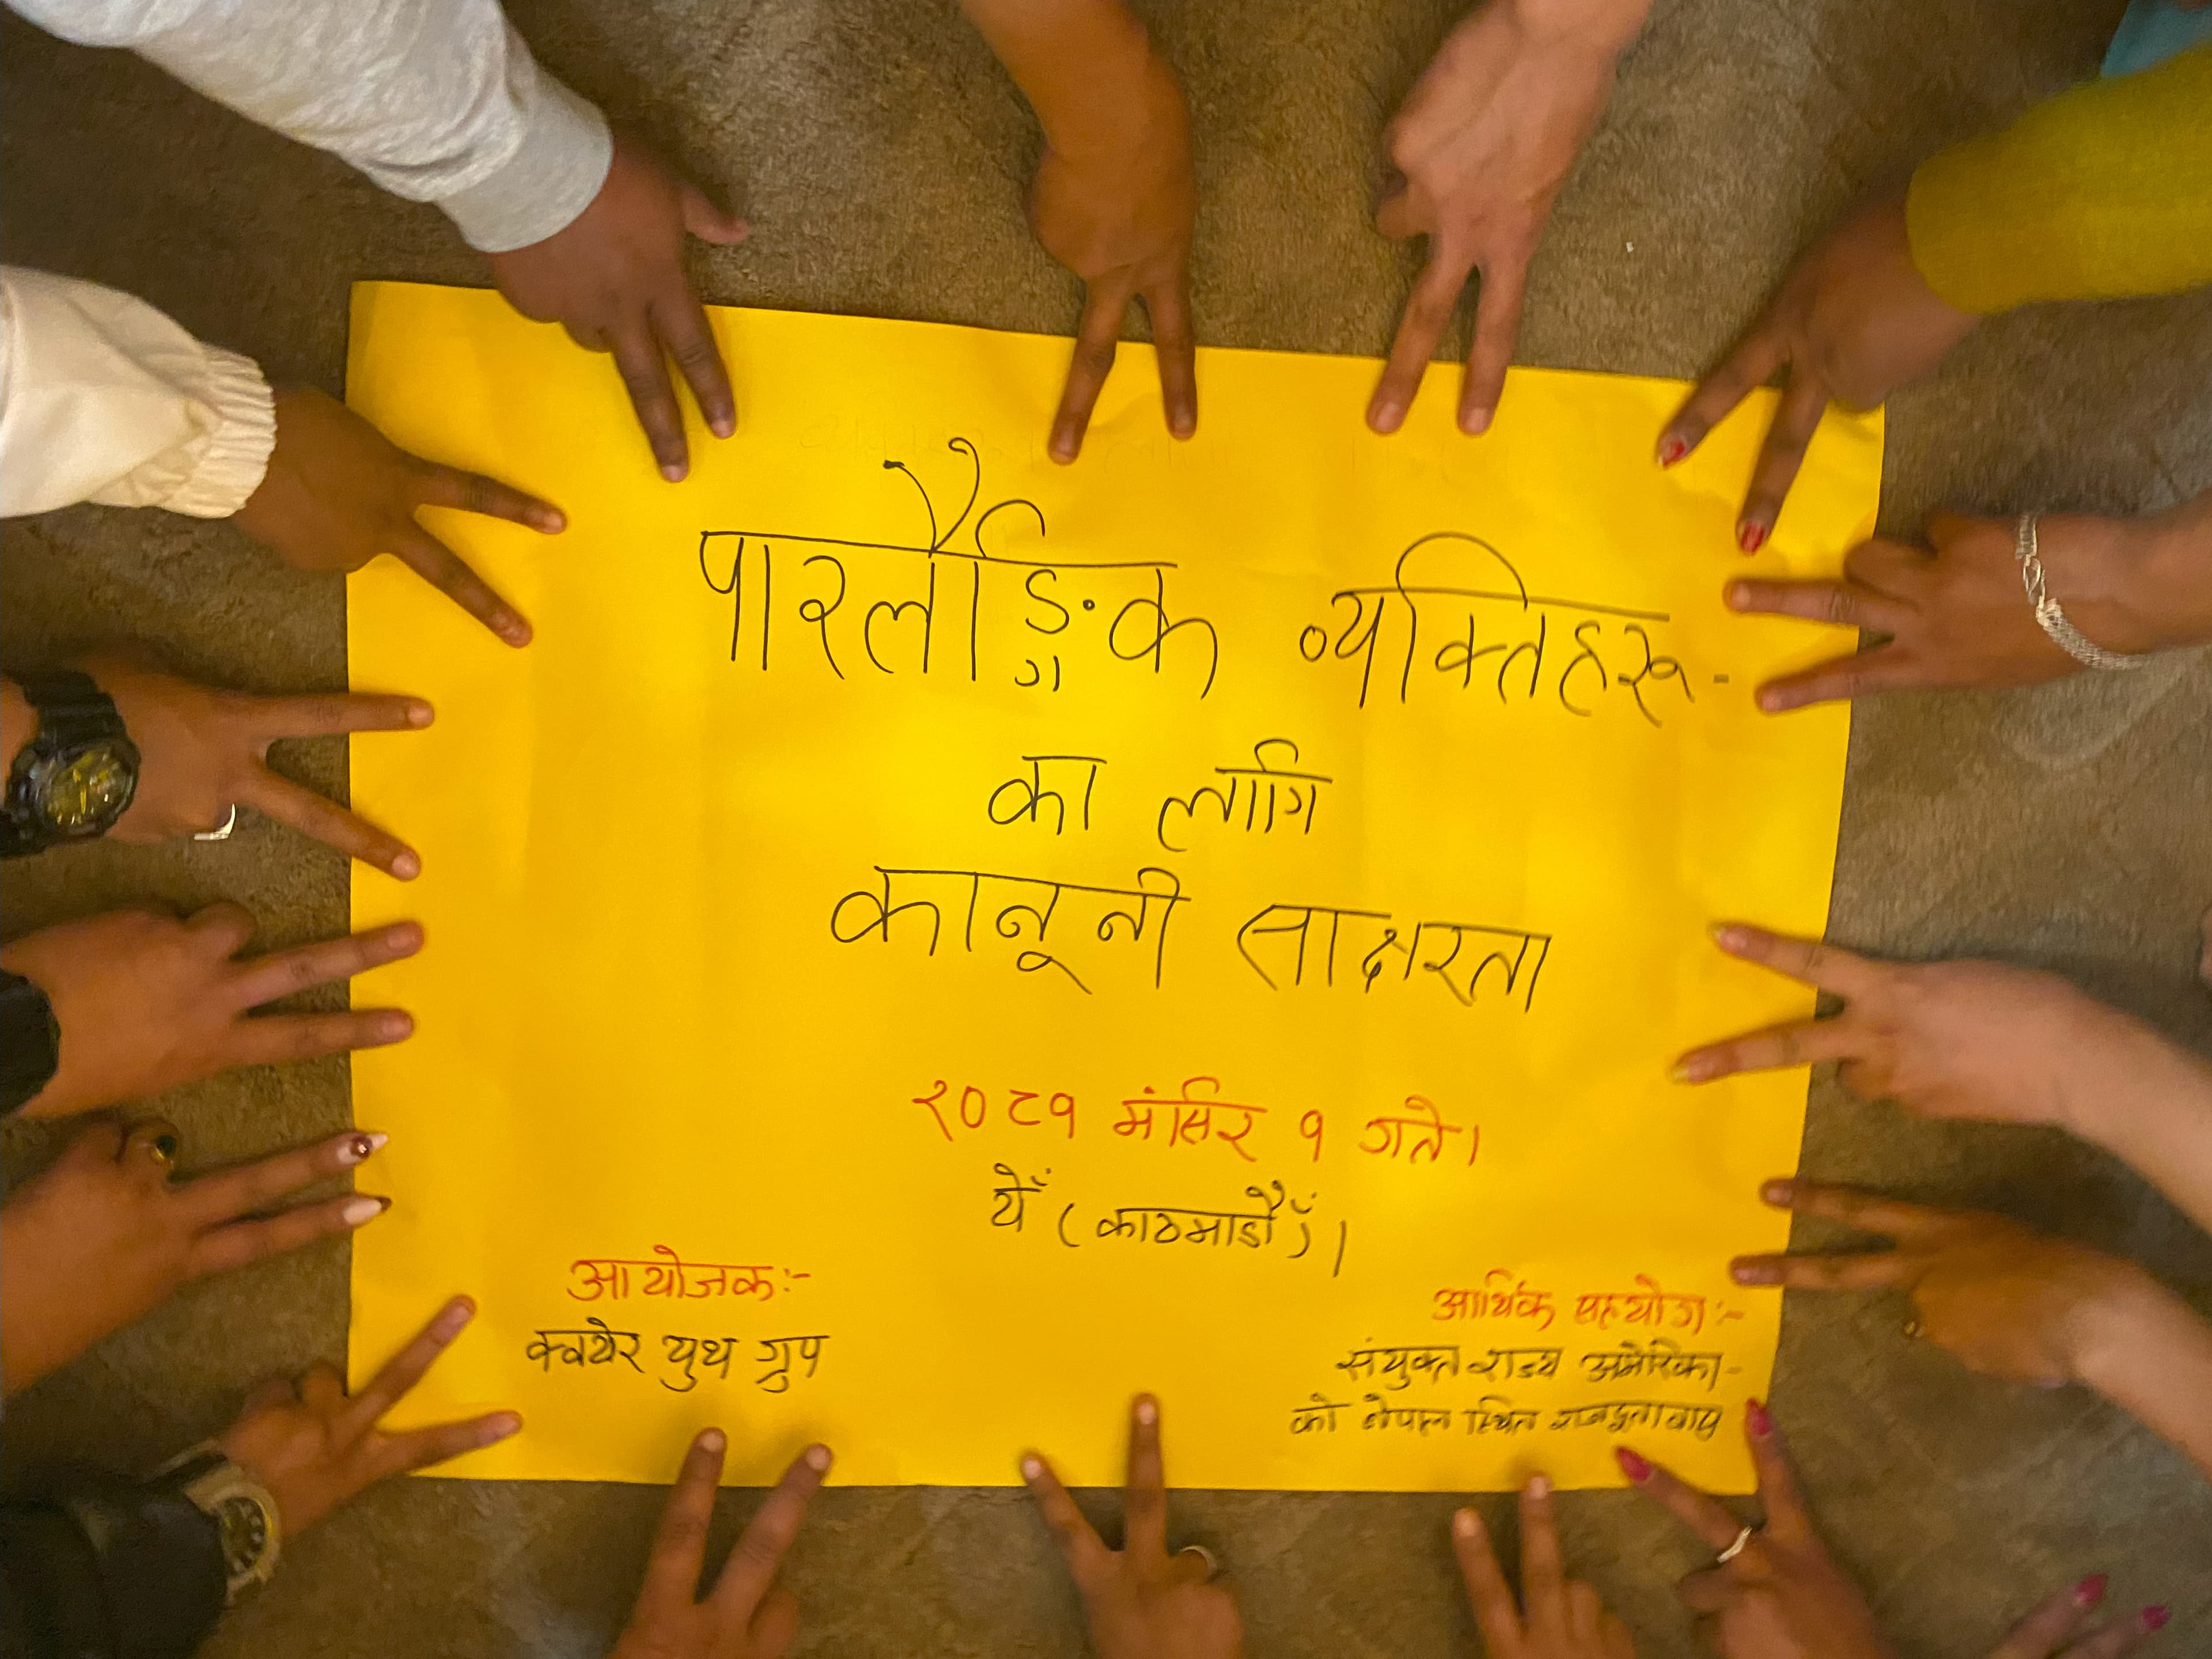 पारलैङ्गिक व्यक्तिहरू-
का लागि
कानूनी साक्षरता
२०८१ मंसिर १ गते।
येँ (काठमाडौँ)।
आयोजकः-
क्वयेर युथ ग्रुप
आर्थिक सहयोगः-
संयुक्त राज्य अमेरिका-
को नेपाल स्थित राजदूतावास